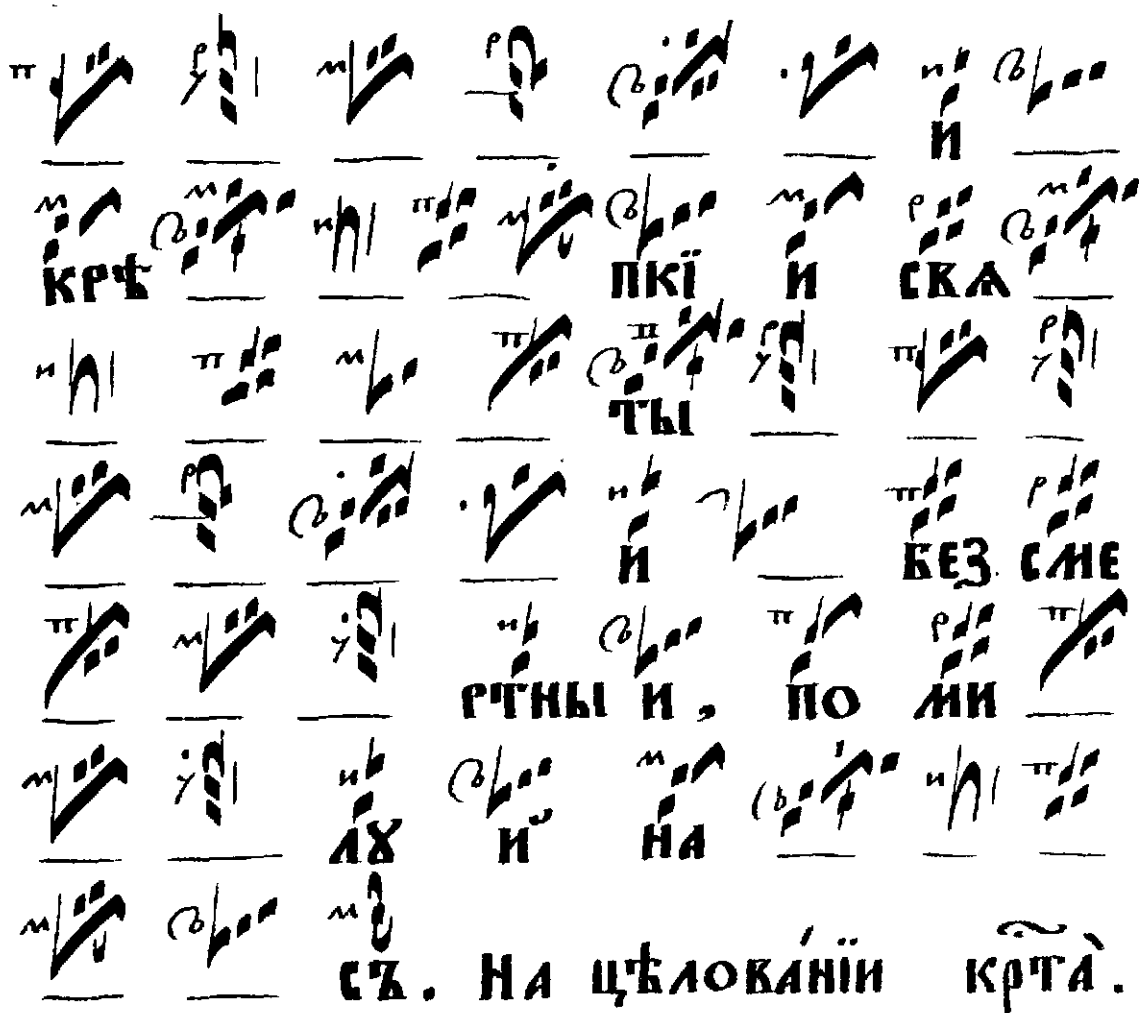 И
КРѢ ПКЇ И СВѦ
ТЫ
И БЕЗ СМЕ
РТНЫ И, ПО МИ
ЛꙊ Й НА
СЪ. НА ЦѢЛОВА́НЇИ КР҃ТА̀.